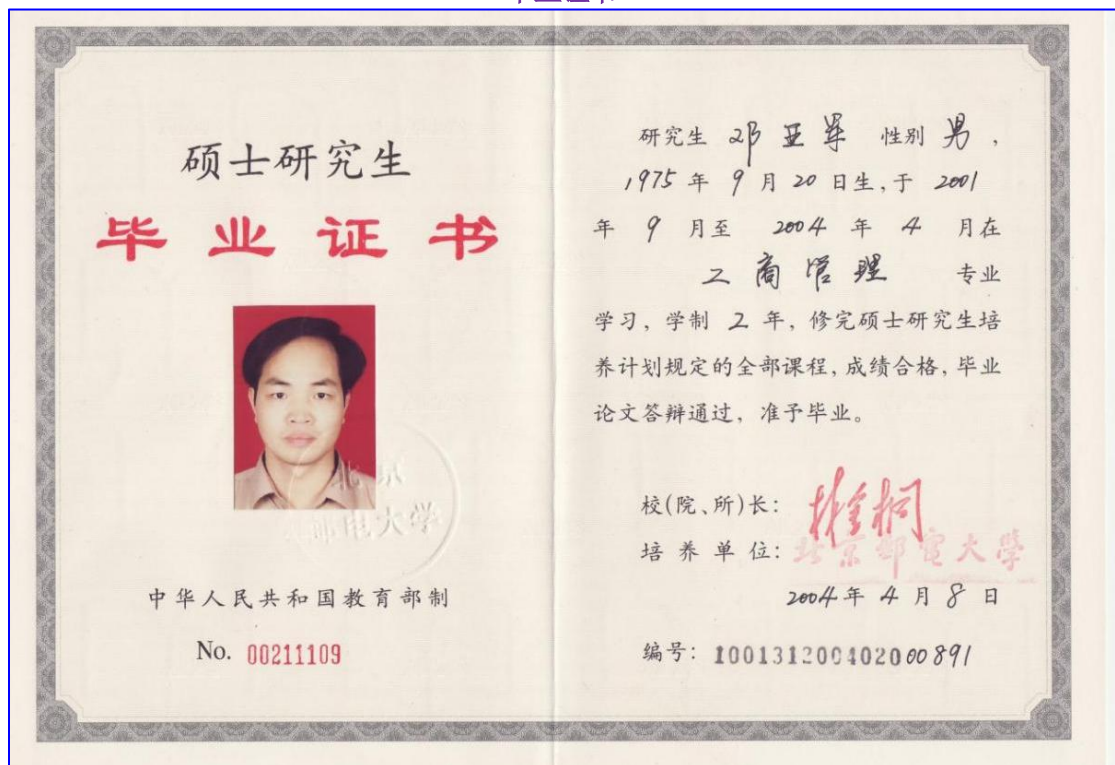 硕士研究生
毕业证书
北京
邮电大学
中华人民共和国教育部制
No. 00211109
研究生 邓亚军 性别 男，
1975 年 9 月 20 日生，于 2001
年 9 月至 2004 年 4 月在
工商管理 专业
学习，学制 2 年，修完硕士研究生培
养计划规定的全部课程，成绩合格，毕业
论文答辩通过，准予毕业。
校(院、所)长：
培养单位：北京邮电大學
2004 年 4 月 8 日
编号：100131200402000891